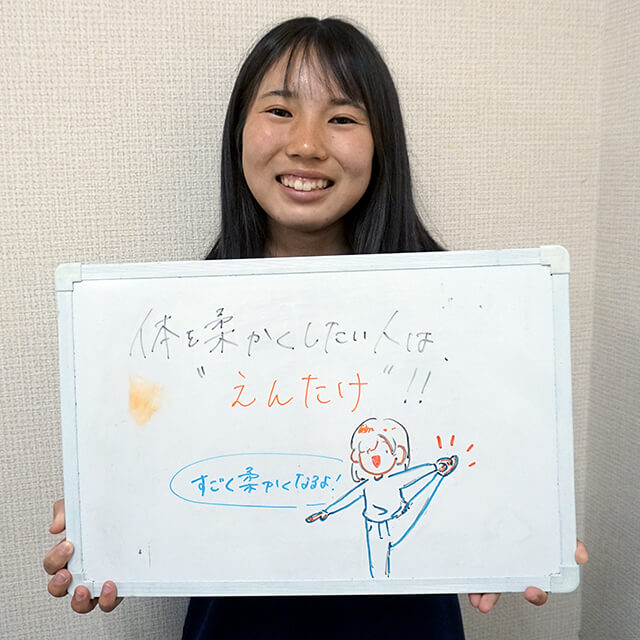 体を柔かくしたい人は、
"えんたけ"!!
すごく柔かくなるよ!